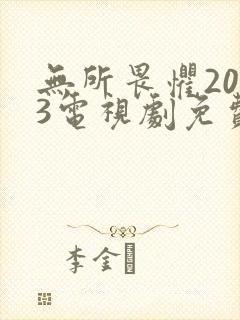 無所畏懼20
3電視劇免費
李金